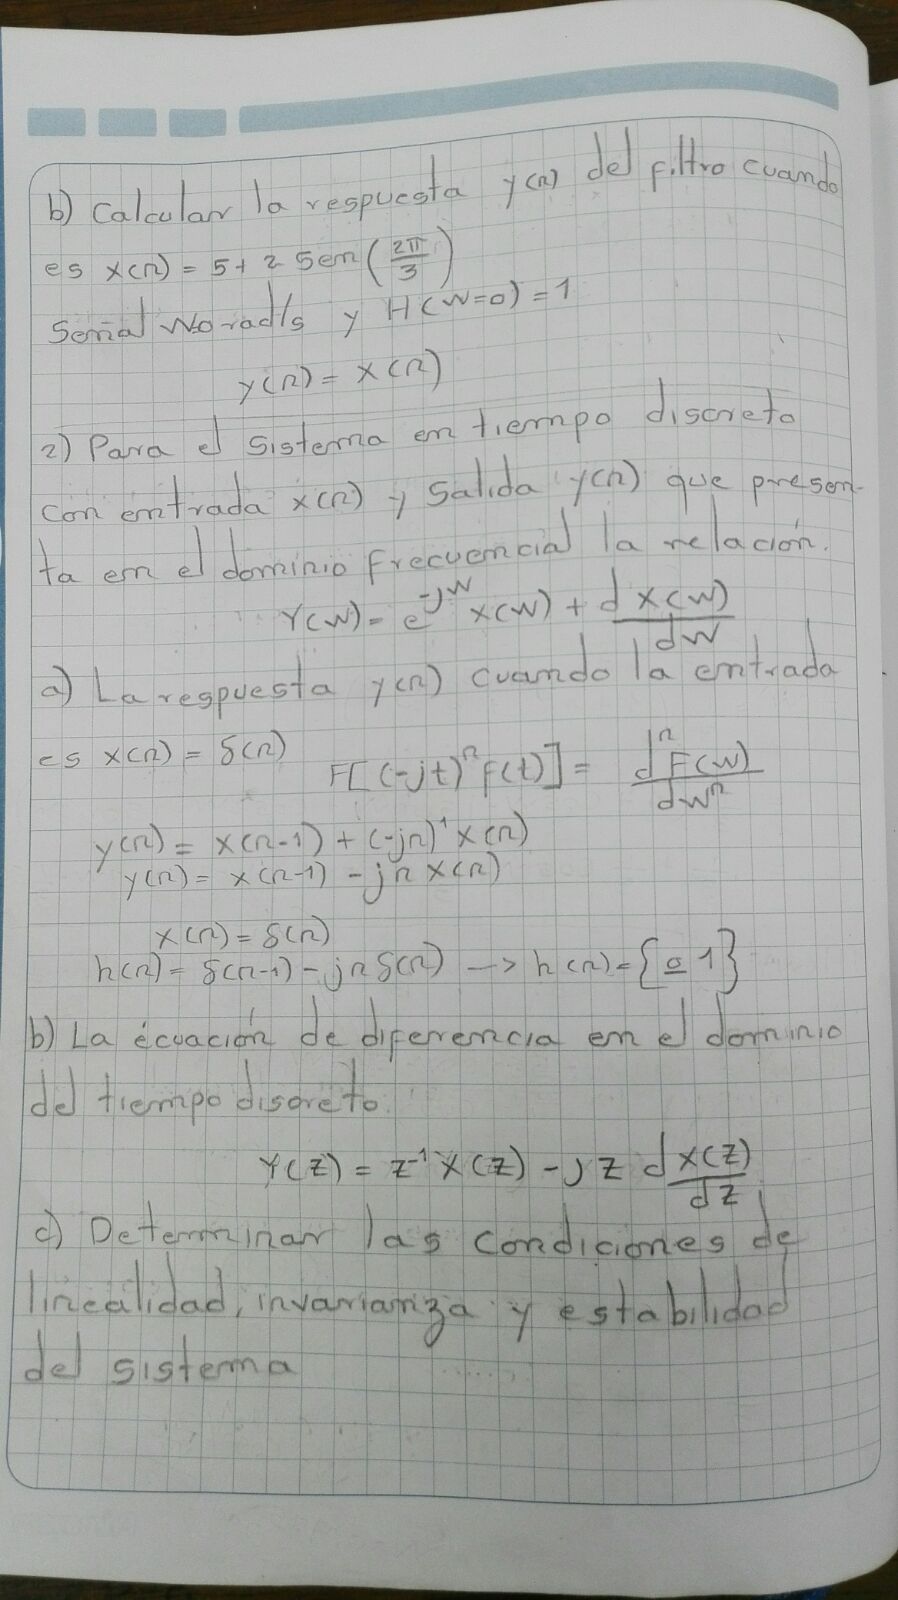 b) Calcular la respuesta y(n) del filtro cuando
es x(n) = 5 + 2 Sen (2π/3)
Señal W0 rad/s y H(W=0) = 1
y(n) = x(n)
2) Para el sistema en tiempo discreto
con entrada x(n) y salida y(n) que presen-
ta en el dominio frecuencial la relación.
Y(W) = e^-jW X(W) + d X(W)/dW
a) La respuesta y(n) cuando la entrada
es x(n) = δ(n) F[(-jt)^n f(t)] = d^n F(W)/dW^n
y(n) = x(n-1) + (-jn)^1 x(n)
y(n) = x(n-1) - jn x(n)
x(n) = δ(n)
h(n) = δ(n-1) - jn δ(n) -> h(n) = {0 1}
b) La écuación de diferencia en el dominio
del tiempo discreto
Y(Z) = Z^-1 X(Z) - j Z d X(Z)/dZ
c) Determinar las condiciones de
linealidad, invarianza y estabilidad
del sistema